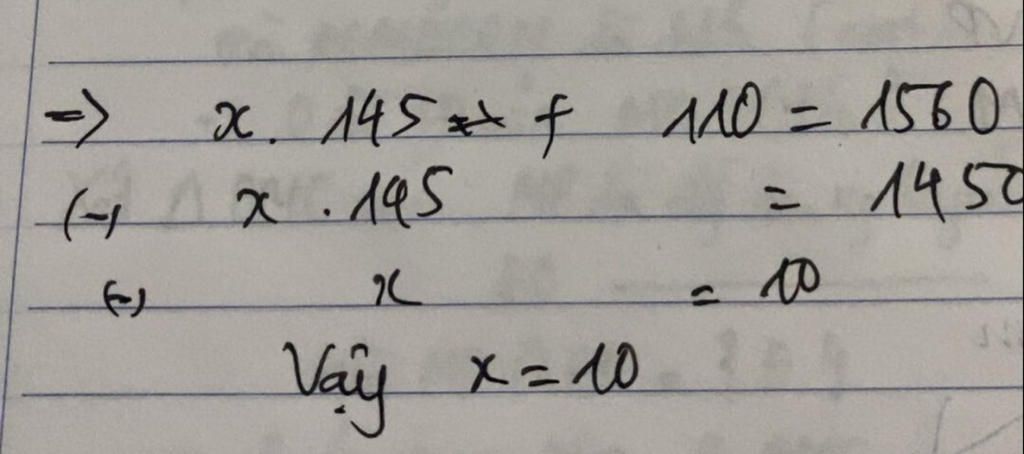 => x. 145 + 110 = 1560
(-) x . 145 = 1450
(-) x = 10
Vậy x = 10